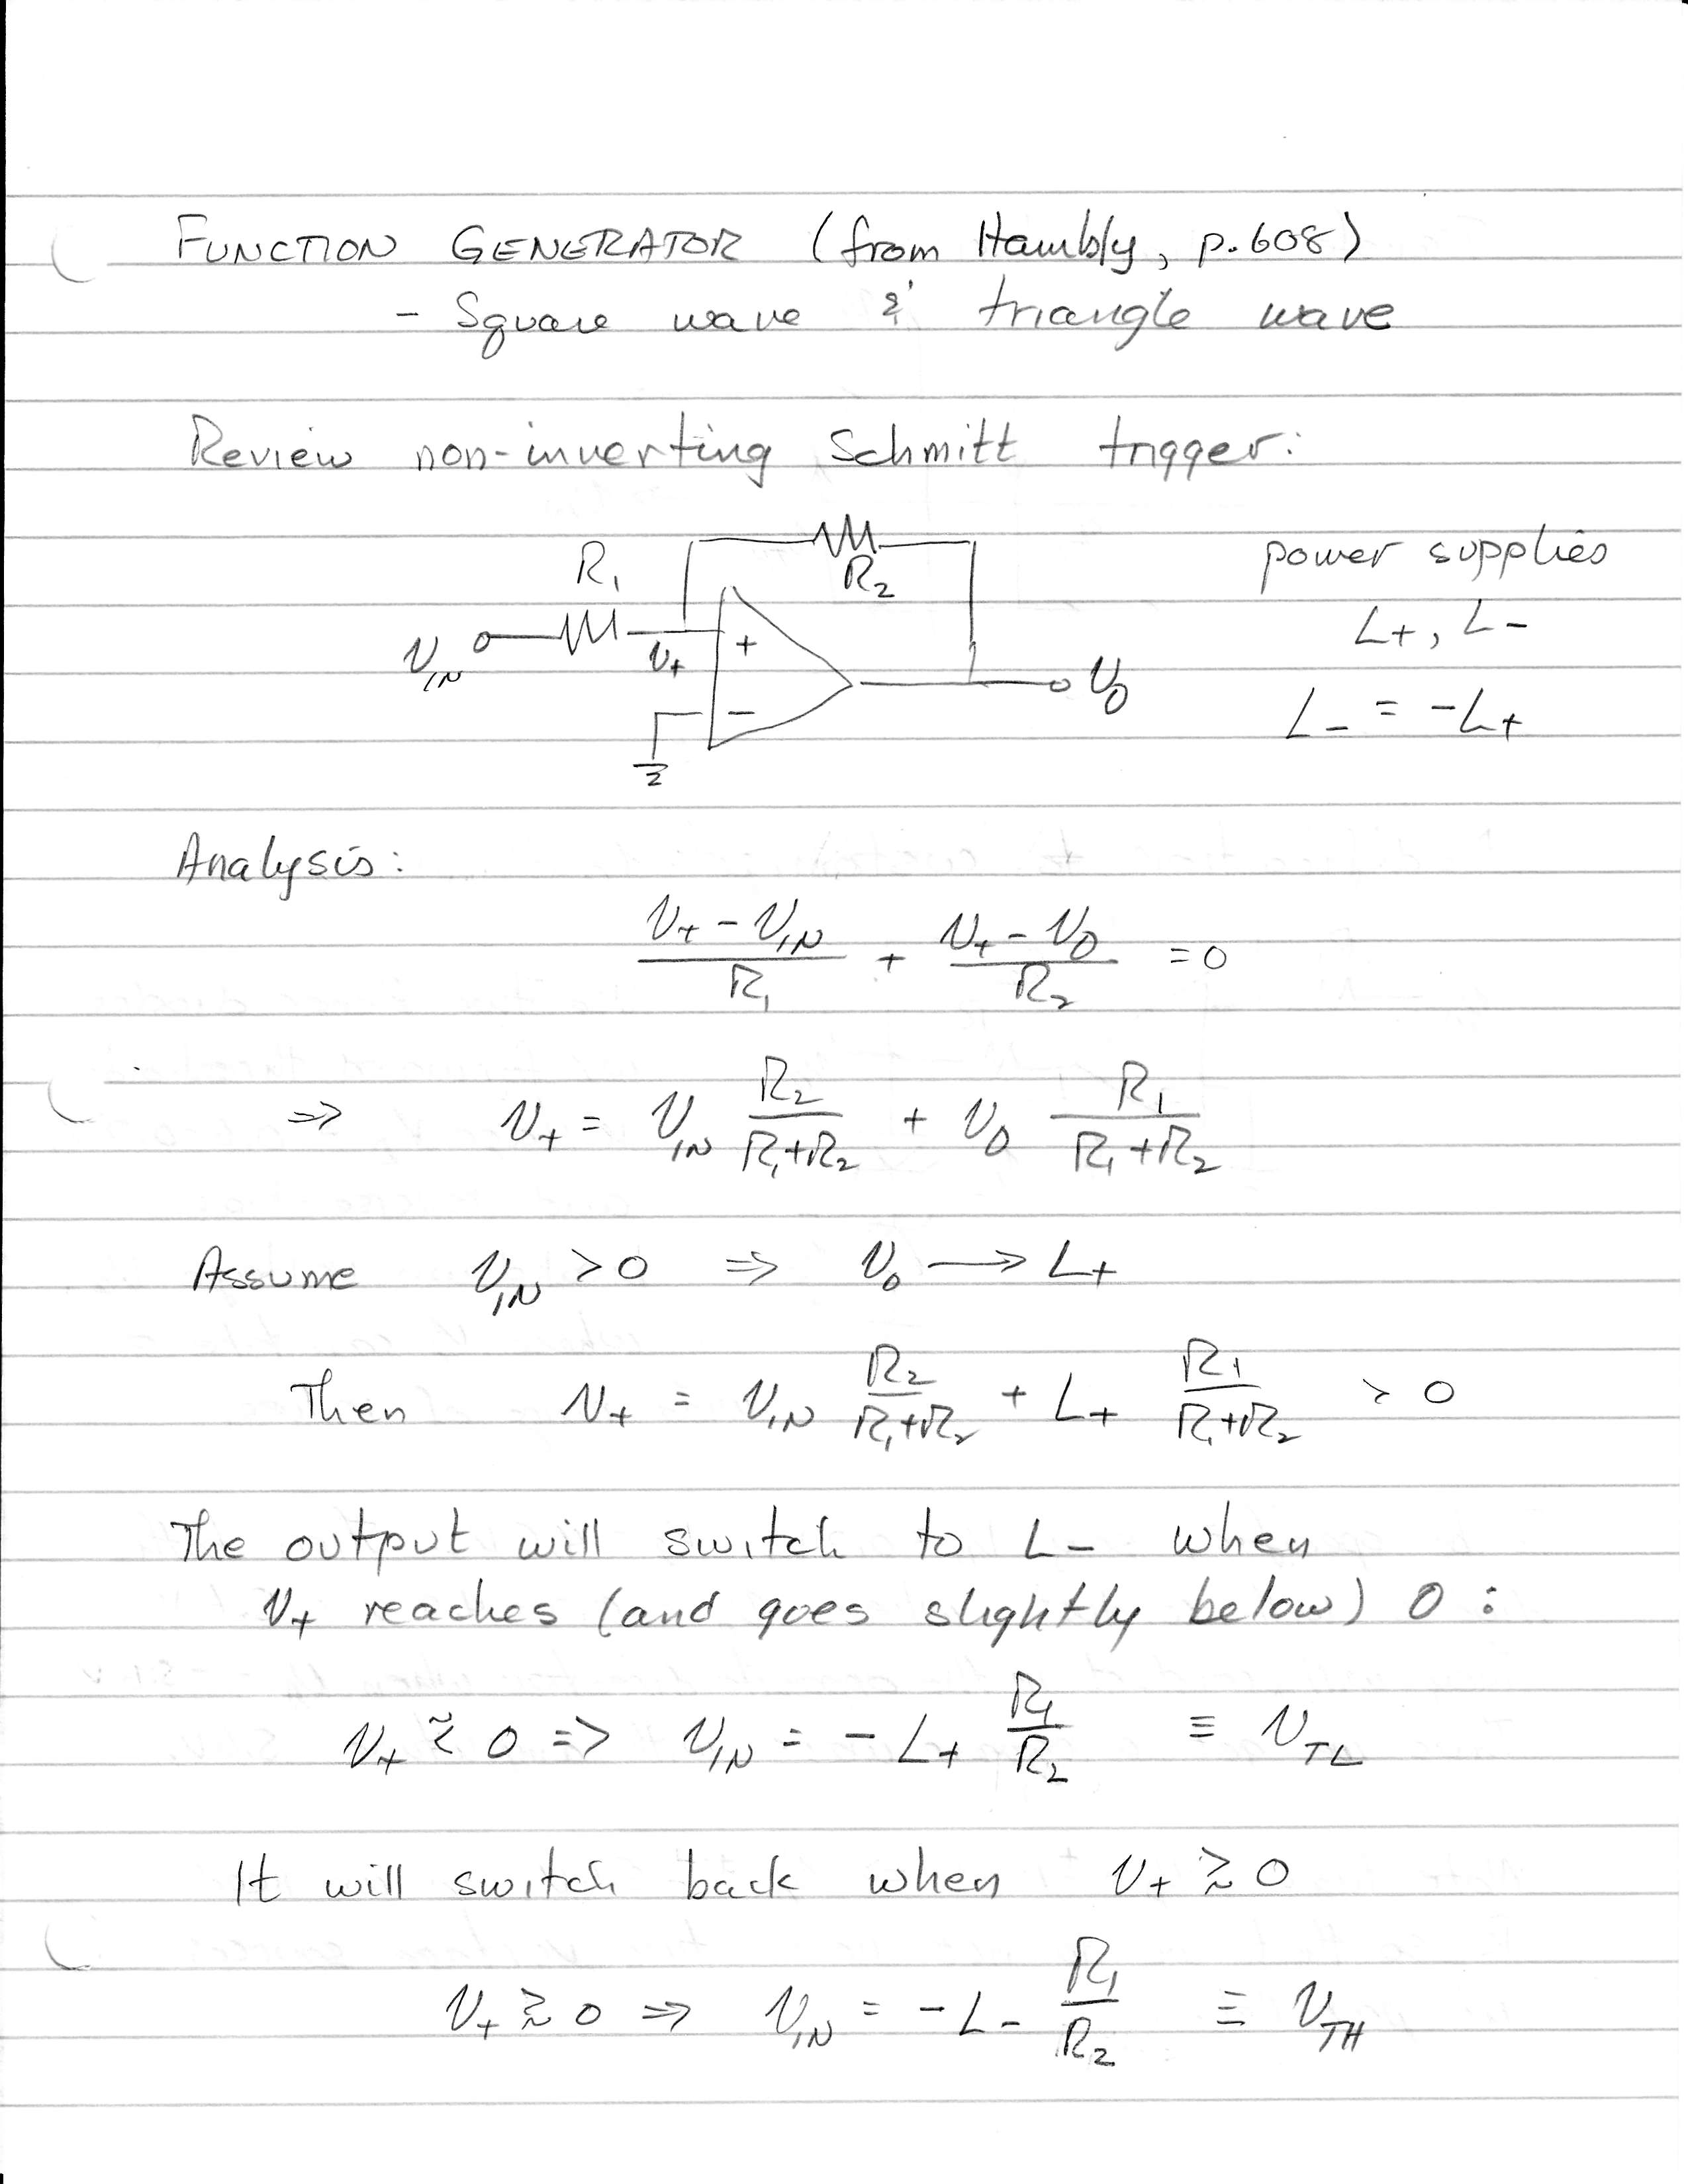 FUNCTION GENERATOR (from Hambly, p.608)
- Square wave & triangle wave
Review non-inverting Schmitt trigger:
R₂
R₁
V_IN
V₊
+
−
V_O
power supplies
L₊, L₋
L₋ = -L₊
Analysis:
(V₊ - V_IN)/R₁ + (V₊ - V_O)/R₂ = 0
⇒ V₊ = V_IN R₂/(R₁+R₂) + V_O R₁/(R₁+R₂)
Assume V_IN > 0 ⇒ V_O → L₊
Then V₊ = V_IN R₂/(R₁+R₂) + L₊ R₁/(R₁+R₂) > 0
The output will switch to L₋ when
V₊ reaches (and goes slightly below) 0:
V₊ ≈ 0 => V_IN = - L₊ R₁/R₂ ≡ V_TL
It will switch back when V₊ ≳ 0
V₊ ≳ 0 ⇒ V_IN = - L₋ R₁/R₂ ≡ V_TH